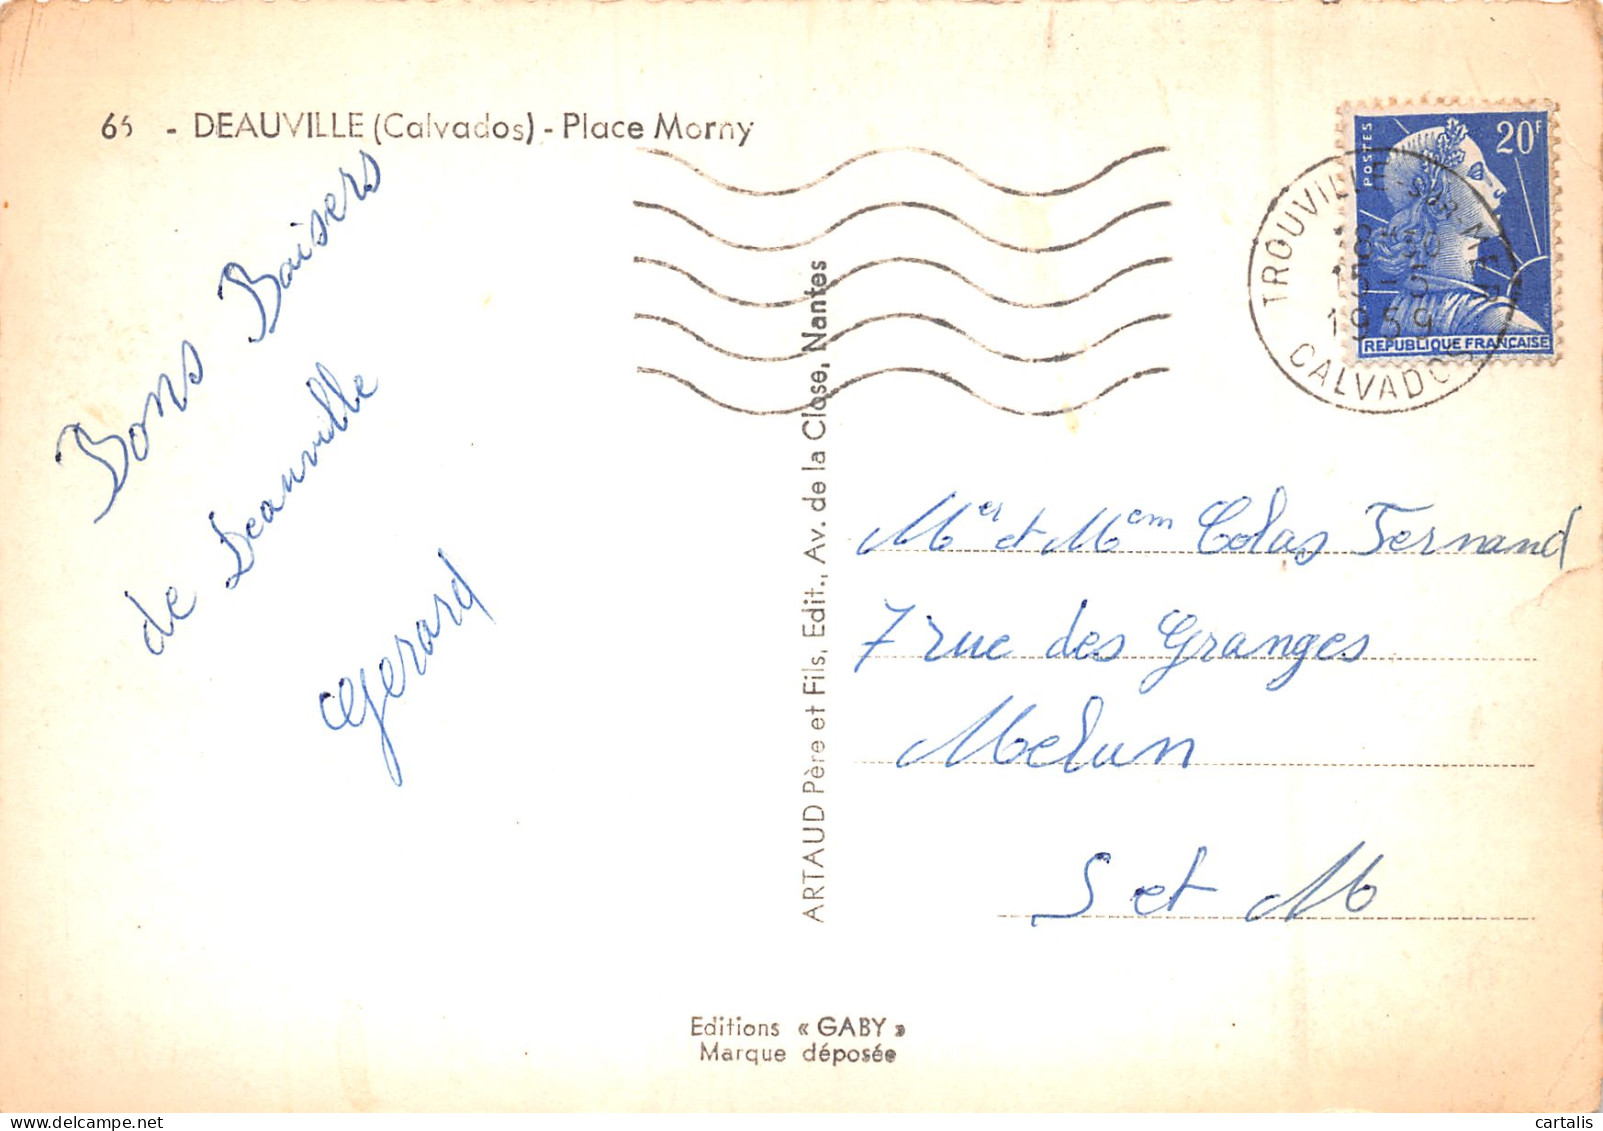 65 - DEAUVILLE (Calvados) - Place Morny
Bons Baisers
de Deauville
Gerard
ARTAUD Père et Fils, Edit., Av. de la Close, Nantes
POSTES
20F
REPUBLIQUE FRANCAISE
TROUVILLE-SUR-MER
18H30
5-5
1959
CALVADOS
Mer et Mem Colas Fernand
7 rue des Granges
Melun
S et M
Editions « GABY »
Marque déposée
cartalis
delcampe.net